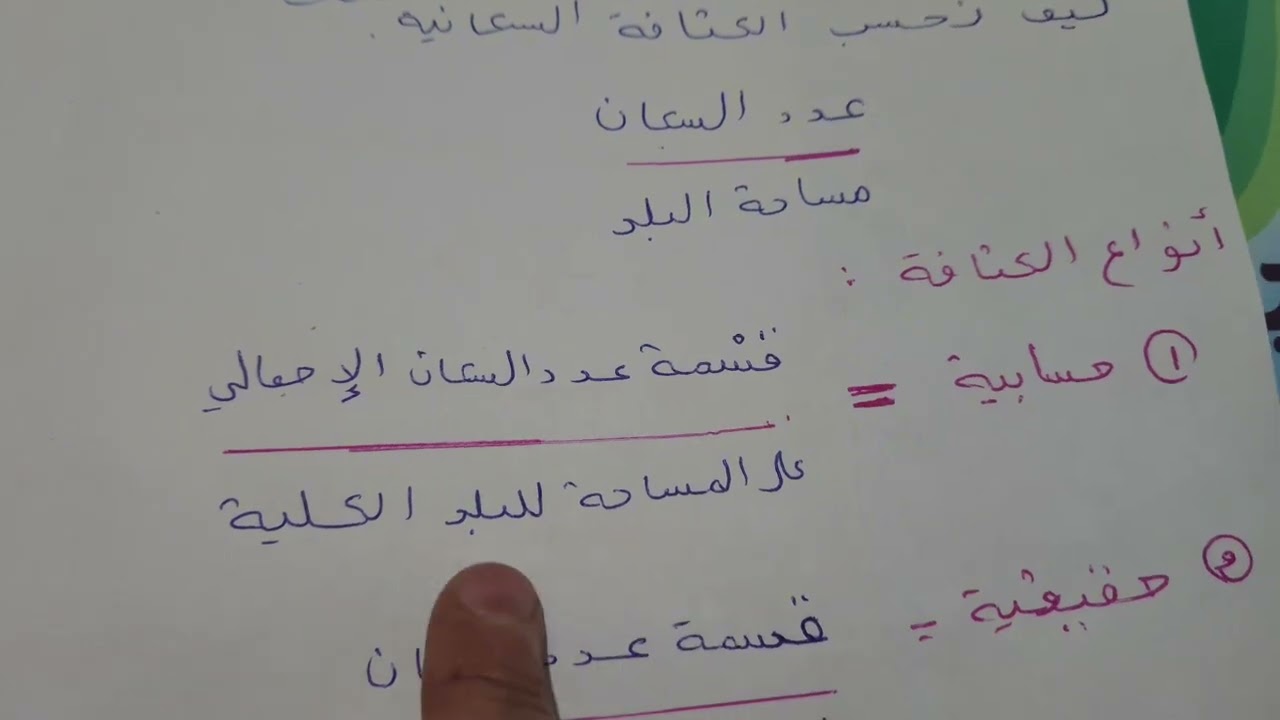 كيف نحسب الكثافة السكانية.
عدد السكان
مساحة البلد
أنواع الكثافة :
① حسابية =
قسْمة عدد السكان الإجمالي
على المساحة للبلد الكلية
② حقيقية =
قسمة عدد